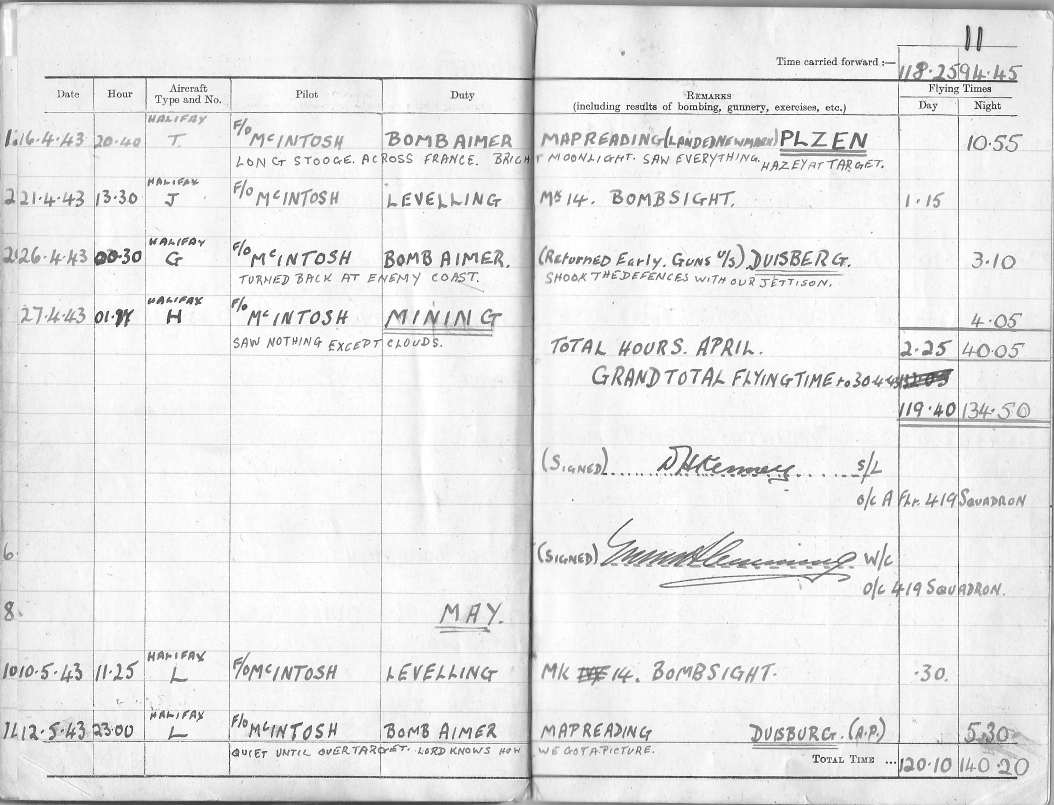 11
Time carried forward :— 118·25 94·45
Date Hour Aircraft Type and No. Pilot Duty REMARKS (including results of bombing, gunnery, exercises, etc.) Flying Times Day Night
1. 16·4·43 20·40 HALIFAX T. F/O McINTOSH BOMB AIMER MAPREADING (LANDED NEWMARK) PLZEN 10·55
LONG STOOGE. ACROSS FRANCE. BRIGHT MOONLIGHT. SAW EVERYTHING. HAZEY AT TARGET.
2 21·4·43 13·30 HALIFAX J F/O McINTOSH LEVELLING MK 14. BOMBSIGHT. 1·15
26·4·43 00·30 HALIFAX G F/O McINTOSH BOMB AIMER. (Returned Early. Guns U/S) DUISBERG. 3·10
TURNED BACK AT ENEMY COAST. SHOOK THE DEFENCES WITH OUR JETTISON.
27·4·43 01· HALIFAX H F/O McINTOSH MINING 4·05
SAW NOTHING EXCEPT CLOUDS.
TOTAL HOURS. APRIL. 2·25 40·05
GRAND TOTAL FLYING TIME to 30·4·43
119·40 134·50
(SIGNED) DHKenney S/L
O/C A Flt. 419 SQUADRON
6.
(SIGNED) W/C
O/C 419 SQUADRON.
8. MAY.
10 10·5·43 11·25 HALIFAX L F/O McINTOSH LEVELLING MK 14. BOMBSIGHT. ·30.
12·5·43 23:00 HALIFAX L F/O McINTOSH BOMB AIMER MAPREADING DUISBURG. (A.P.) 5·30
QUIET UNTIL OVER TARGET. LORD KNOWS HOW WE GOT A PICTURE.
TOTAL TIME ... 120·10 140·20